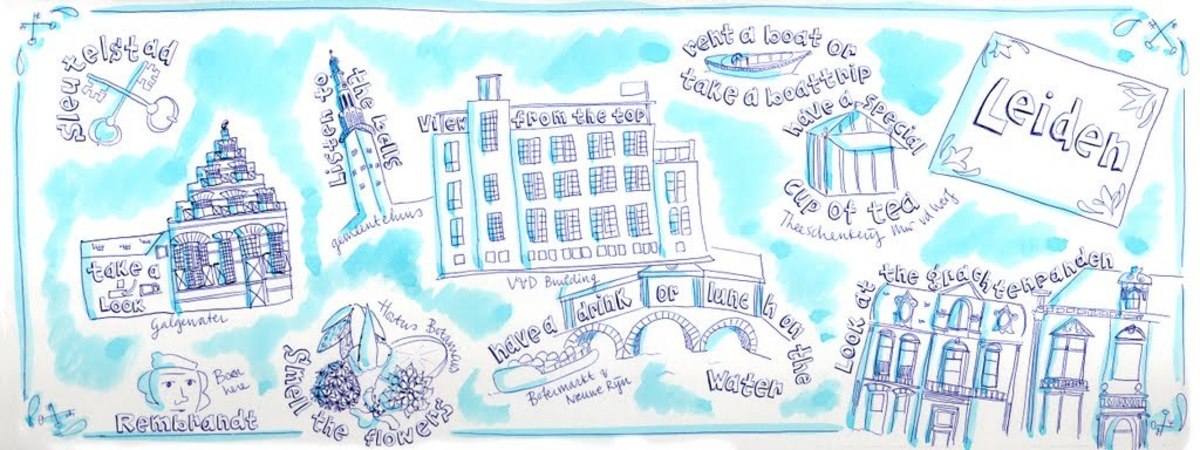 Sleutelstad
Listen to
the bells
gemeentehuis
View from the top
V&D Building
rent a boat or
take a boattrip
have a special
cup of tea
Theeschenkerij Mw vd
Leiden
take a
Look
Galgewater
Born
here
Rembrandt
Hortus Botanicus
Smell the flowers
have a drink or lunch on the
water
Botermarkt &
Nieuwe Rijn
Look at the grachtenpanden